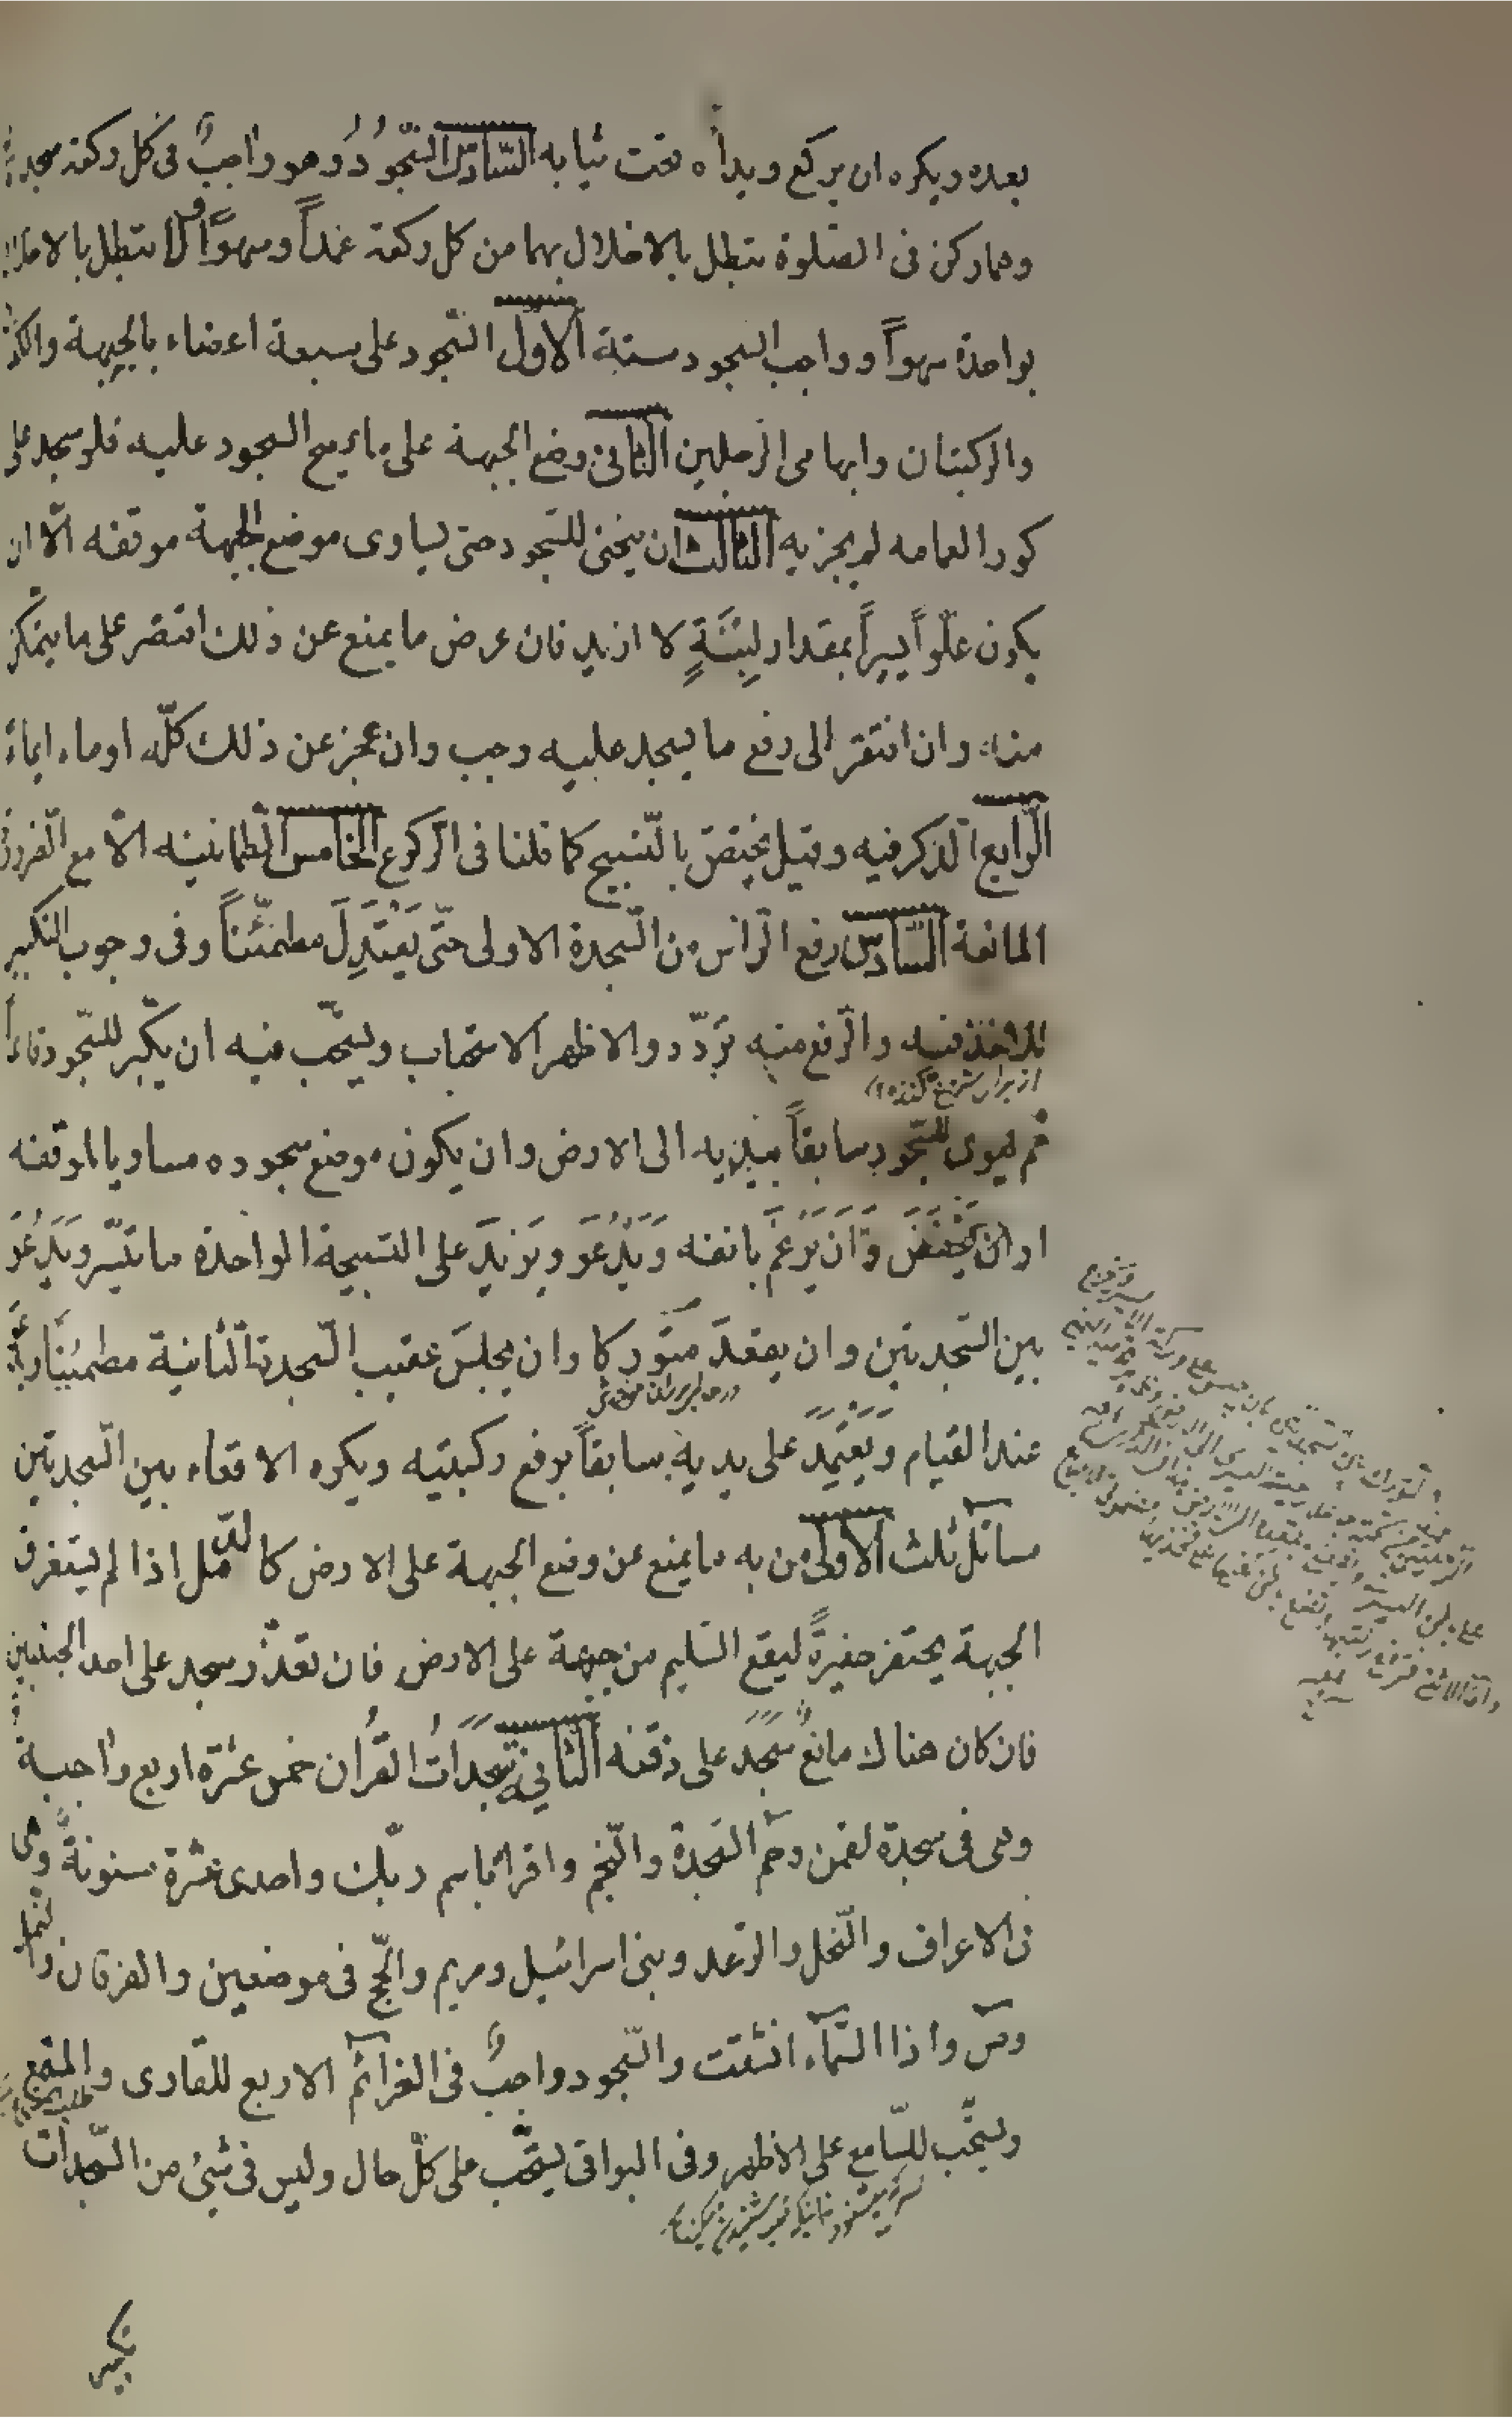 بعده ويكره ان يركع ويداه تحت ثيابه السّادس السّجُودُ وهو واجبٌ فى كل ركعة سجدتان
وهما ركن فى الصّلوة تبطل بالاخلال بهما من كل ركعة عمداً وسهواً ولا تبطل بالاخلال
بواحدة سهواً وواجب السجود ستة الاوّل السّجود على سبعة اعضاء بالجبهة والكفّان
والركبتان وابهامى الرّجلين الثّانى وضع الجبهة على ما يصح السجود عليه فلو سجد على
كور العمامه لم يجزيه الثالث ان ينحنى للسّجود حتى يساوى موضع الجبهة موقفه الّا ان
يكون علوّاً يسيراً بمقدار لبِنَةٍ لا ازيد فان عرض ما يمنع عن ذلك اقتصر على ما يتمكّن
منه وان افتقر الى رفع ما يسجد عليه وجب وان عجز عن ذلك كلّه اوماء ايماءً
الرّابع الذكر فيه وقيل يختصّ بالتّسبيح كما قلنا فى الرّكوع الخامس الطّمانينه الّا مع الضّرورة
المانعة السّادس رفع الرّاس من السّجدة الاولى حتّى يَعْتَدِلَ مطمئنّاً وفى وجوب التكبير
للاخذ فيه والرّفع منه تردّد والاظهر الاستحباب ويستحّب فيه ان يكبّر للسّجود قائماً
ثم يهوى للسّجود سابقاً بيديه الى الارض وان يكون موضع سجوده مساويا لموقفه
او ان يَخْفَضَ وَاَن يَرْغَمَ بانفه وَيَدْعُوَ ويَزيدَ على التسبيحة الواحدة ما تيّسر ويَدْعُوَ
بين السّجدتين وان يقعدَ متوّركا وان يجلسَ عقيب السّجدة الثّانية مطمئنّاً ويَدْعُوَ
عند القيام وَيَعْتَمِدَ على يديه سابقاً برفع ركبتيه ويكره الاقعاء بين السّجدتين
مسائل ثلث الاولى من به ما يمنع عن وضع الجبهة على الارض كالدّمل اذا لم يستغرق
الجبهة يحتفر حفيرةً ليقع السّليم من جبهة على الارض فان تعذّر سجد على احد الجبينين
فان كان هناك مانعٌ سَجَدَ على ذقنه الثّانيه سَجَدَاتُ القُران خمس عشرة اربع واجبة
وهى فى سجدة لقمن وحم السّجدة والنّجم واقرا باسم ربّك واحدى عشرة مسنونةٌ وهى
فى الاعراف والنّحل والرّعد وبنى اسرائيل ومريم والحجّ فى موضعين والفرقان والنّمل
وص واذا السّماء انشقت والسّجود واجبٌ فى العزائم الاربع للقارى والمستمع
ويستحّب للسّامع على الاظهر وفى البواقى يستحّب على كلّ حال وليس فى شيئ من السّجدات
تكبير